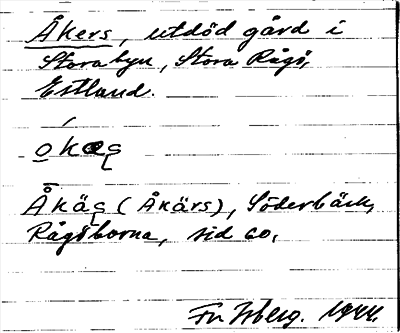 Åkers, utdöd gård i
Storabyn, Stora Rågö,
Estland.
Åkäς (Åkärs), Söderbäck,
Rågöborna, sid 60.
Isberg. 1944.